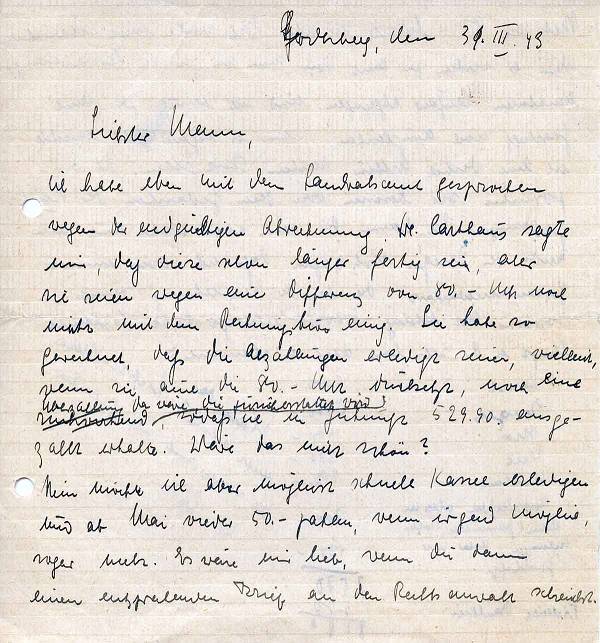 Godesberg, den 31. III. 43
Liebster Mann,
ich habe eben mit dem Landratsamt gesprochen
wegen der endgültigen Abrechnung Dr. Carthaus sagte
mir, daß diese schon länger fertig sei, aber
sie seien wegen einer Differenz von 80.- Mk noch
nicht mit dem Rechnungsbüro einig. Sie habe so
gerechnet, daß die Abzahlungen erledigt seien, vielleicht,
wenn sie auch die 80.- Mk durchsetzt, noch eine
Überzahlung da wäre, die
sodaß ich 529.90. ausge-
zahlt erhalte. Wäre das nicht schön?
Nun möchte ich aber möglichst schnell Kassel erledigen
und ab Mai wieder 50.- zahlen, wenn irgend möglich,
sogar mehr. Es wäre mir lieb, wenn du dann
einen entsprechenden Brief an den Rechtsanwalt schreibst.